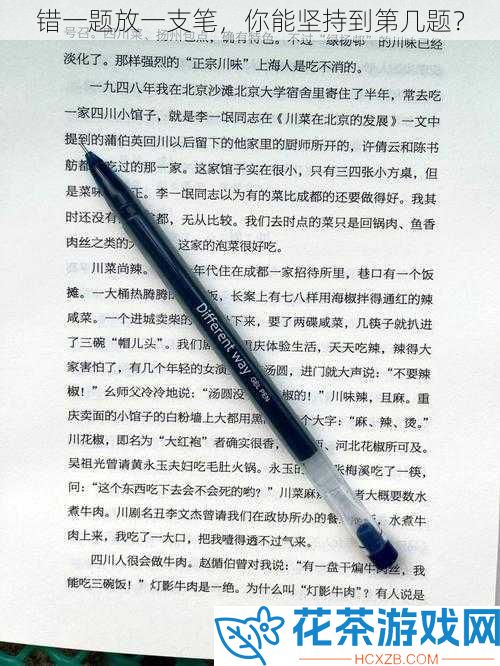 错一题放一支笔，你能坚持到第几题？
号召。四川菜、扬州包点，确有特色。不过“绿杨邨”的川味已经
淡化了。那样强烈的“正宗川味”上海人是吃不消的。
一九四八年我在北京沙滩北京大学宿舍里寄住了半年，常去吃
一家四川小馆子，就是李一氓同志在《川菜在北京的发展》一文中
提到的蒲伯英回川以后留下的他家里的厨师所开的，许倩云和陈书
舫都 吃过的那一家。这家馆子实在很小，只有三四张小方桌，但
是菜味 正。李一氓同志以为有的菜比成都的还要做得好。我其
时还没有 都，无从比较。我们去时点的菜只是回锅肉、鱼香
肉丝之类的大 这家的泡菜很好吃。
川菜尚辣。 年代住在成都一家招待所里，巷口有一个饭
摊。一大桶热腾腾 饭，长案上有七八样用海椒拌得通红的辣
咸菜。一个进城卖柴的 下来，要了两碟咸菜，几筷子就扒进
了三碗“帽儿头”。我们剧 重庆体验生活，天天吃辣，辣得大
家害怕了，有几个年轻的女演 汤圆，进门就大声说：“不要辣
椒！”幺师父冷冷地说：“汤圆没 椒的！”川味辣，且麻。重
庆卖面的小馆子的白粉墙上大都用黑 个大字：“麻、辣、烫。”
川花椒，即名为“大红袍”者确实很香， 西、河北花椒所可及。
吴祖光曾请黄永玉夫妇吃毛肚火锅。永玉的 张梅溪吃了一筷，
问：“这个东西吃下去会不会死的哟？”川菜麻辣 者大概要数水
煮牛肉。川剧名丑李文杰曾请我们在政协所办的餐 水煮牛
肉上来，我吃了一大口，把我噎得透不过气来。
四川人很会做牛肉。赵循伯曾对我说：“有一盘干煸牛肉丝，我
能吃三碗饭！”灯影牛肉是一绝。为什么叫“灯影牛肉”？有人说是
Different way
GEL PEN
花茶游戏网
HCXZB.COM